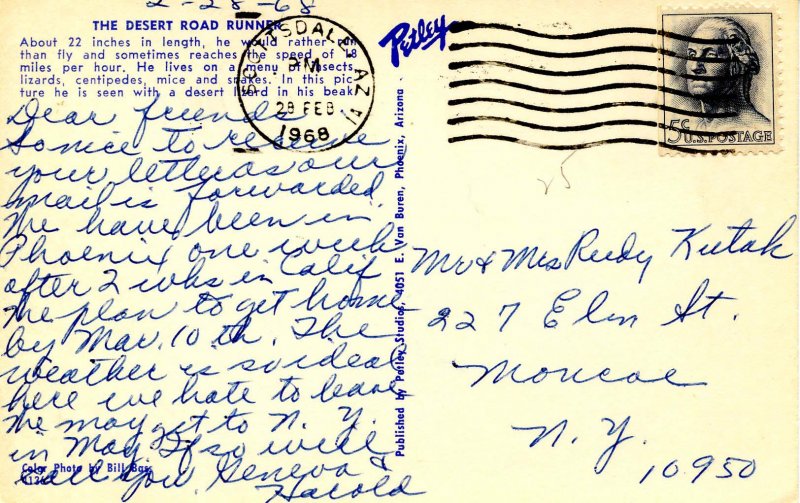 2-28-68
THE DESERT ROAD RUNNER
About 22 inches in length, he would rather run
than fly and sometimes reaches the speed of 18
miles per hour. He lives on a menu of insects,
lizards, centipedes, mice and snakes. In this pic-
ture he is seen with a desert lizard in his beak.
Dear friends
So nice to receive
your letter as our
mail is forwarded.
We have been in
Phoenix one week
after 2 wks in Calif
We plan to get home
by Mar. 10th. The
weather is so ideal
here we hate to leave
We may get to N. Y.
in May. If so will
call you. Geneva &
Harold
Color Photo by Bill Bass
Published by Petley Studios, 4051 E. Van Buren, Phoenix, Arizona
Petley
SCOTTSDALE, AZ
PM
28 FEB
1968
5¢ U.S. POSTAGE
25
Mr & Mrs Rudy Kutak
227 Elm St.
Monroe
N. Y.
10950